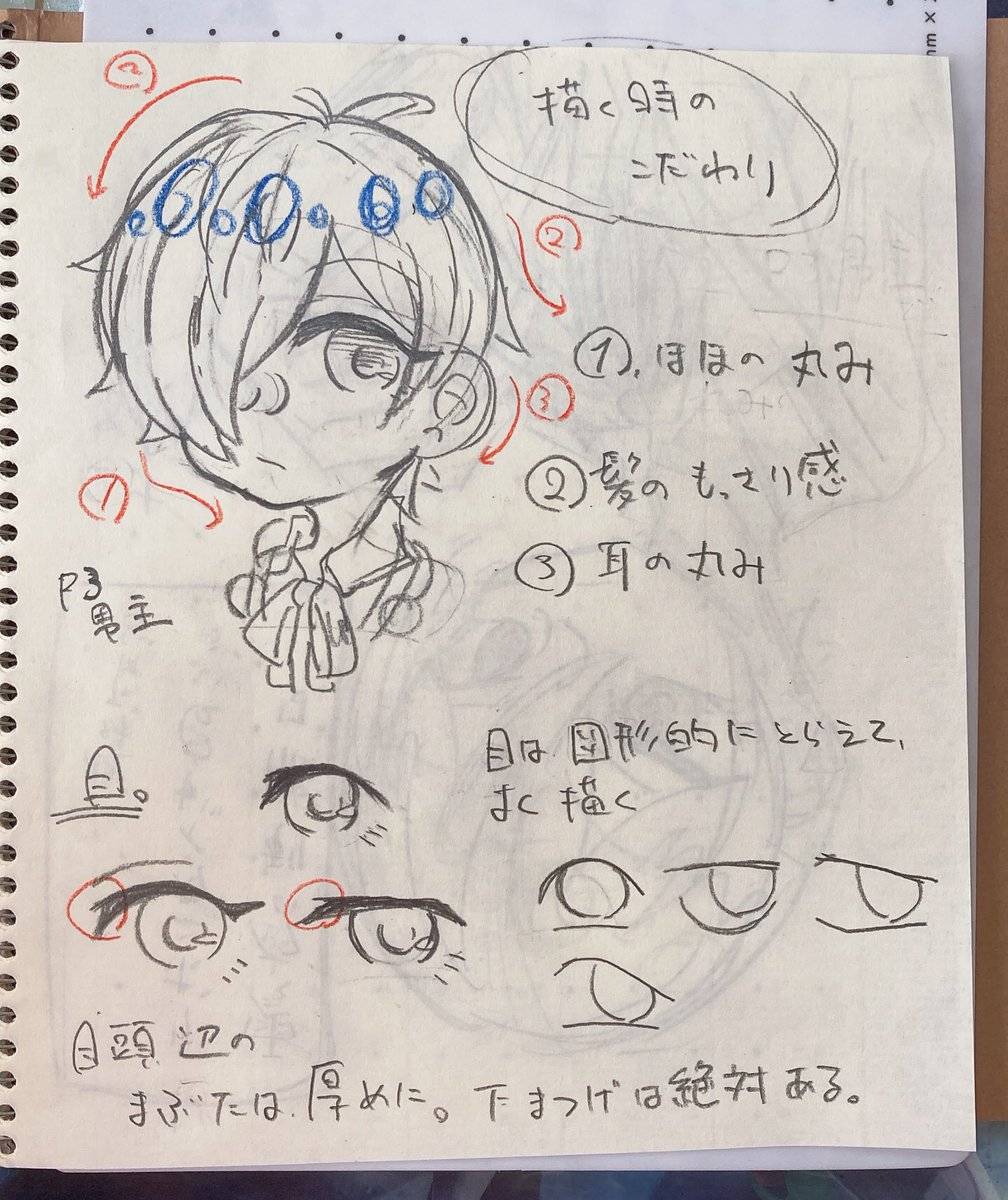 描く時の
こだわり
②
②
①. ほほの丸み
③
②髪のもっさり感
①
③耳の丸み
P3
男主
目。
目は図形的にとらえて、
まく描く
目頭辺の
まぶたは厚めに。下まつげは絶対ある。